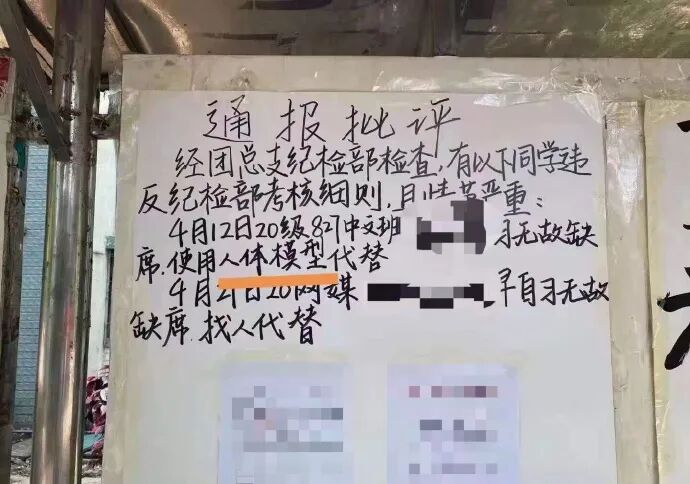 通报批评
经团总支纪检部检查,有以下同学违
反纪检部考核细则,且情节严重:
4月12日20级827中文班 习无故缺
席.使用人体模型代替
4月21日20网媒 早自习无故
缺席.找人代替